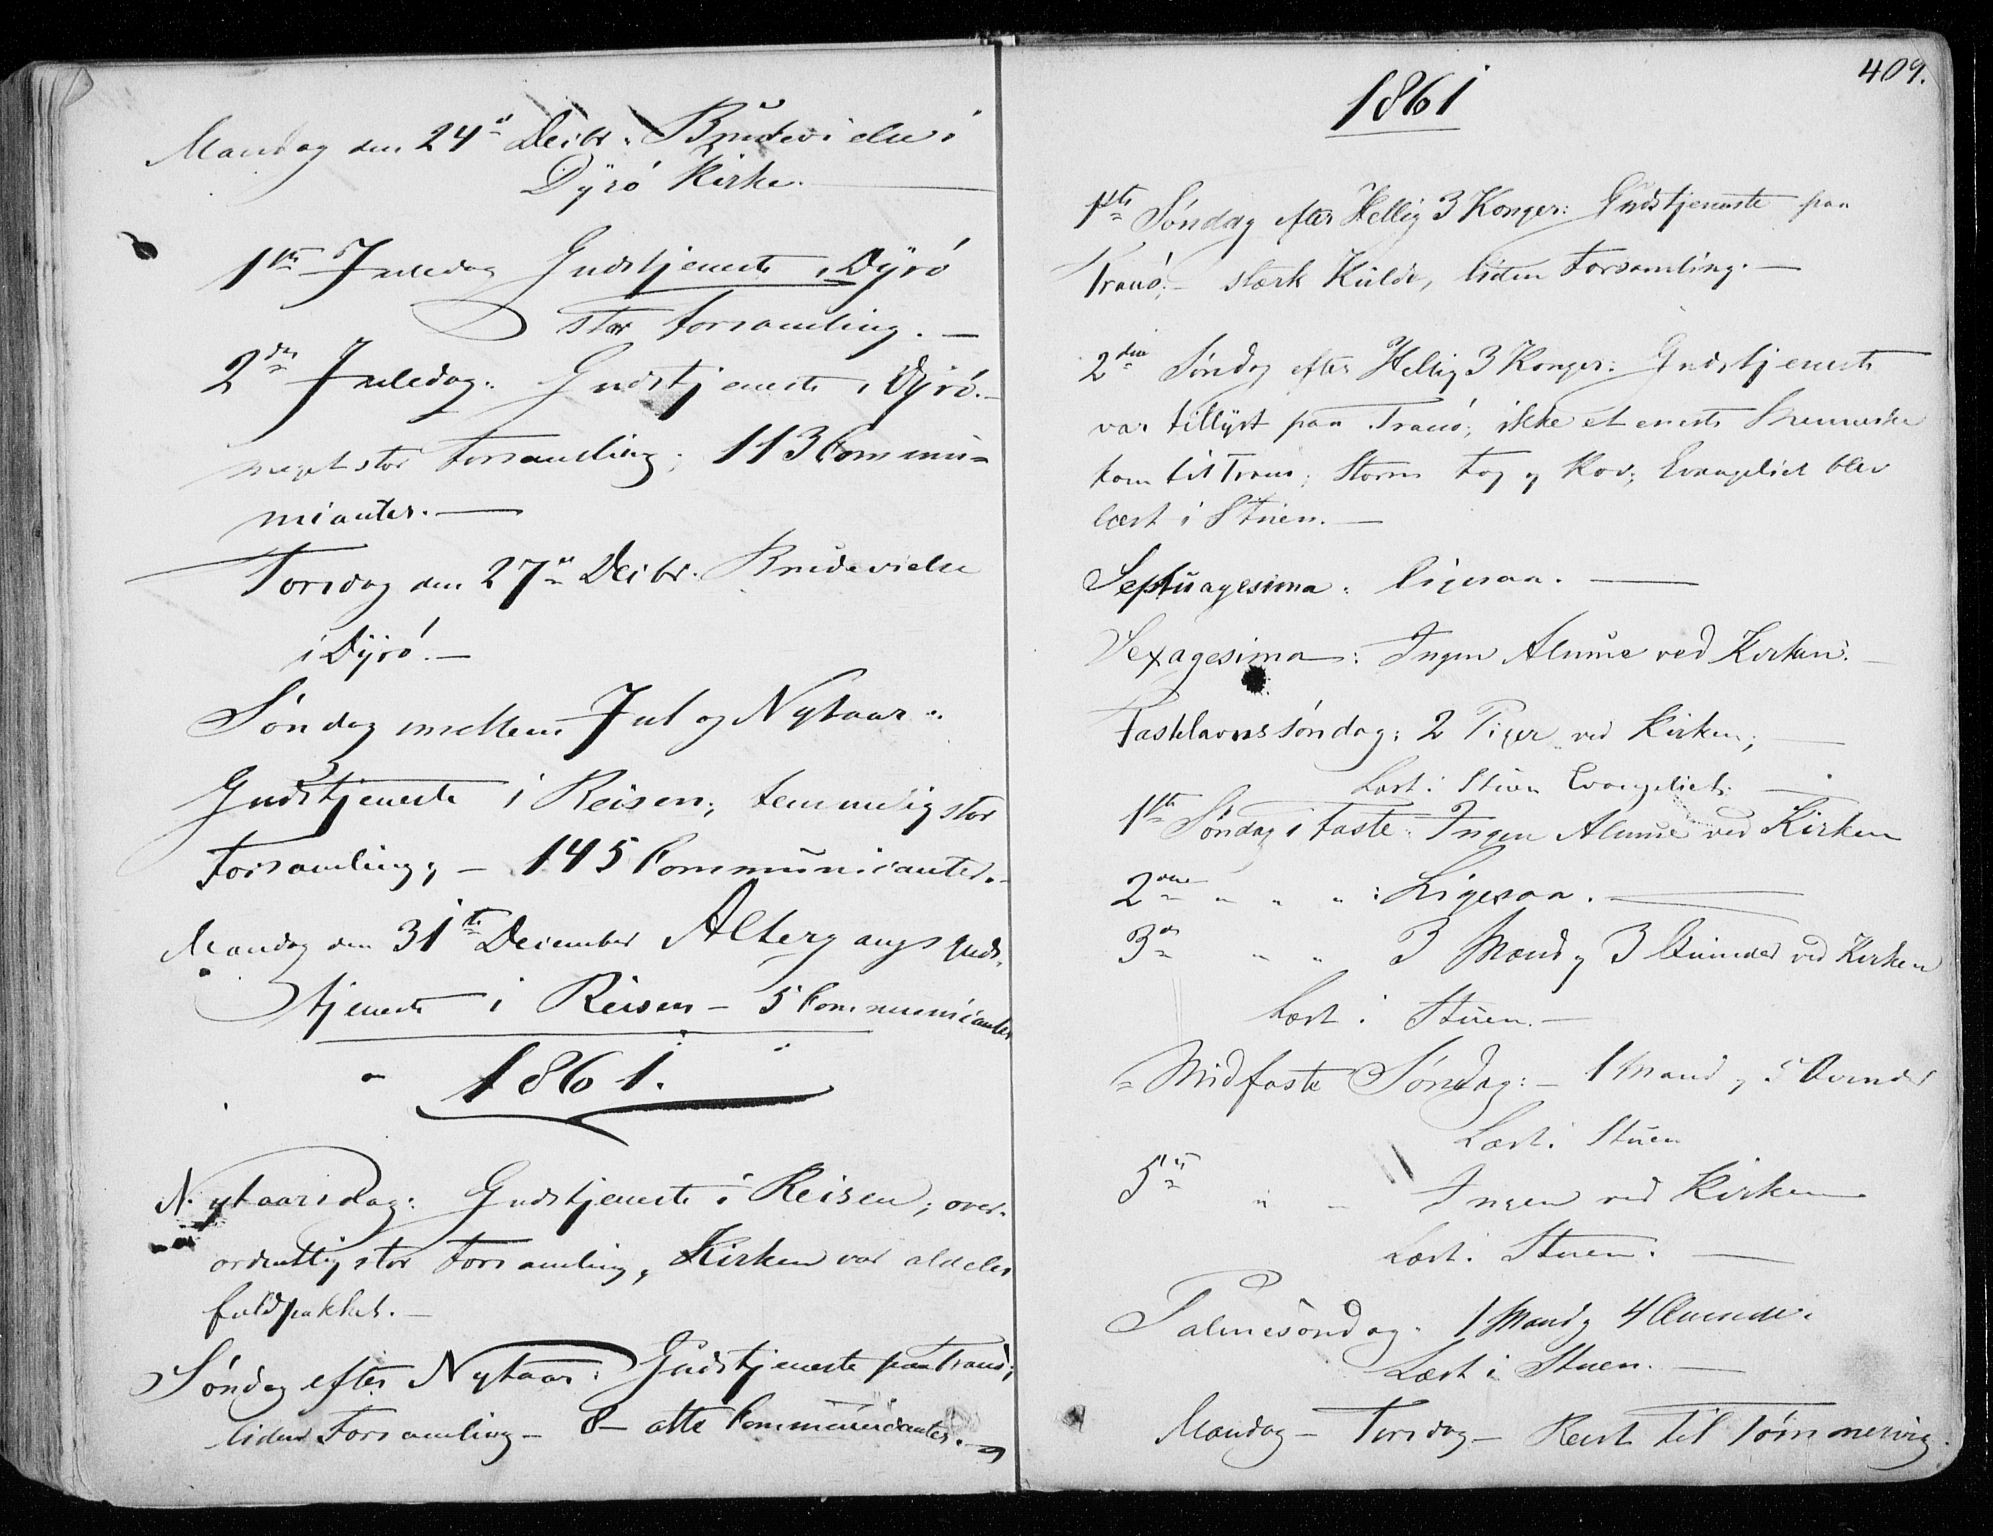 Mandag den 24de Decbr. Brudevielse i
Dÿrø Kirke. —
1ste Juledag Gudstjeneste i Dÿrø
stor Forsamling. —
2den Juledag: Gudstjeneste i Dÿrø. —
meget stor Forsamling; 113 Commu-
nicanter. —
Torsdag den 27de Decbr. Brudevielse
i Dÿrø. —
Søndag mellem Jul og Nytaar:
Gudstjeneste i Reisen; temmelig stor
Forsamling; — 145 Communicanter. —
Mandag den 31te December Altergangsguds-
tjeneste i Reisen — 5 Communicanter
1861.
Nytaarsdag: Gudstjeneste i Reisen; over-
ordentlig stor Forsamling, Kirken var aldeles
fuldpakket. —
Søndag efter Nytaar: Gudstjeneste paa Tranø;
liden Forsamling — 8 — otte Communicanter. —
409.
1861
1ste Søndag efter Hellig 3 Konger: Gudstjeneste paa
Tranø; — stærk Kulde, liden Forsamling. —
2den Søndag efter Hellig 3 Konger: Gudstjeneste
var tillyst paa Tranø; ikke et eneste Menneske
kom til Tranø; Storm Fog og Kov; Evangeliet blev
læst i Stuen. —
Septuagesima: ligesaa. —
Sexagesima: Ingen Almue ved Kirken. —
Fastelavnssøndag: 2 Piger ved Kirken; —
Læst i Stuen Evangeliet. —
1ste Søndag i Faste: Ingen Almue ved Kirken
2den " " " : Ligesaa. —
3die " " 3 Mænd og 3 Qvinder ved Kirken
Læst i Stuen. —
Midfaste Søndag: — 1 Mand og 5 Qvinder
Læst i Stuen
5te " " Ingen ved Kirken
Læst i Stuen. —
Palmesøndag. 1 Mand og 4 Qvinder.
Læst i Stuen. —
Mandag — Torsdag — Reist til Tømmervig.